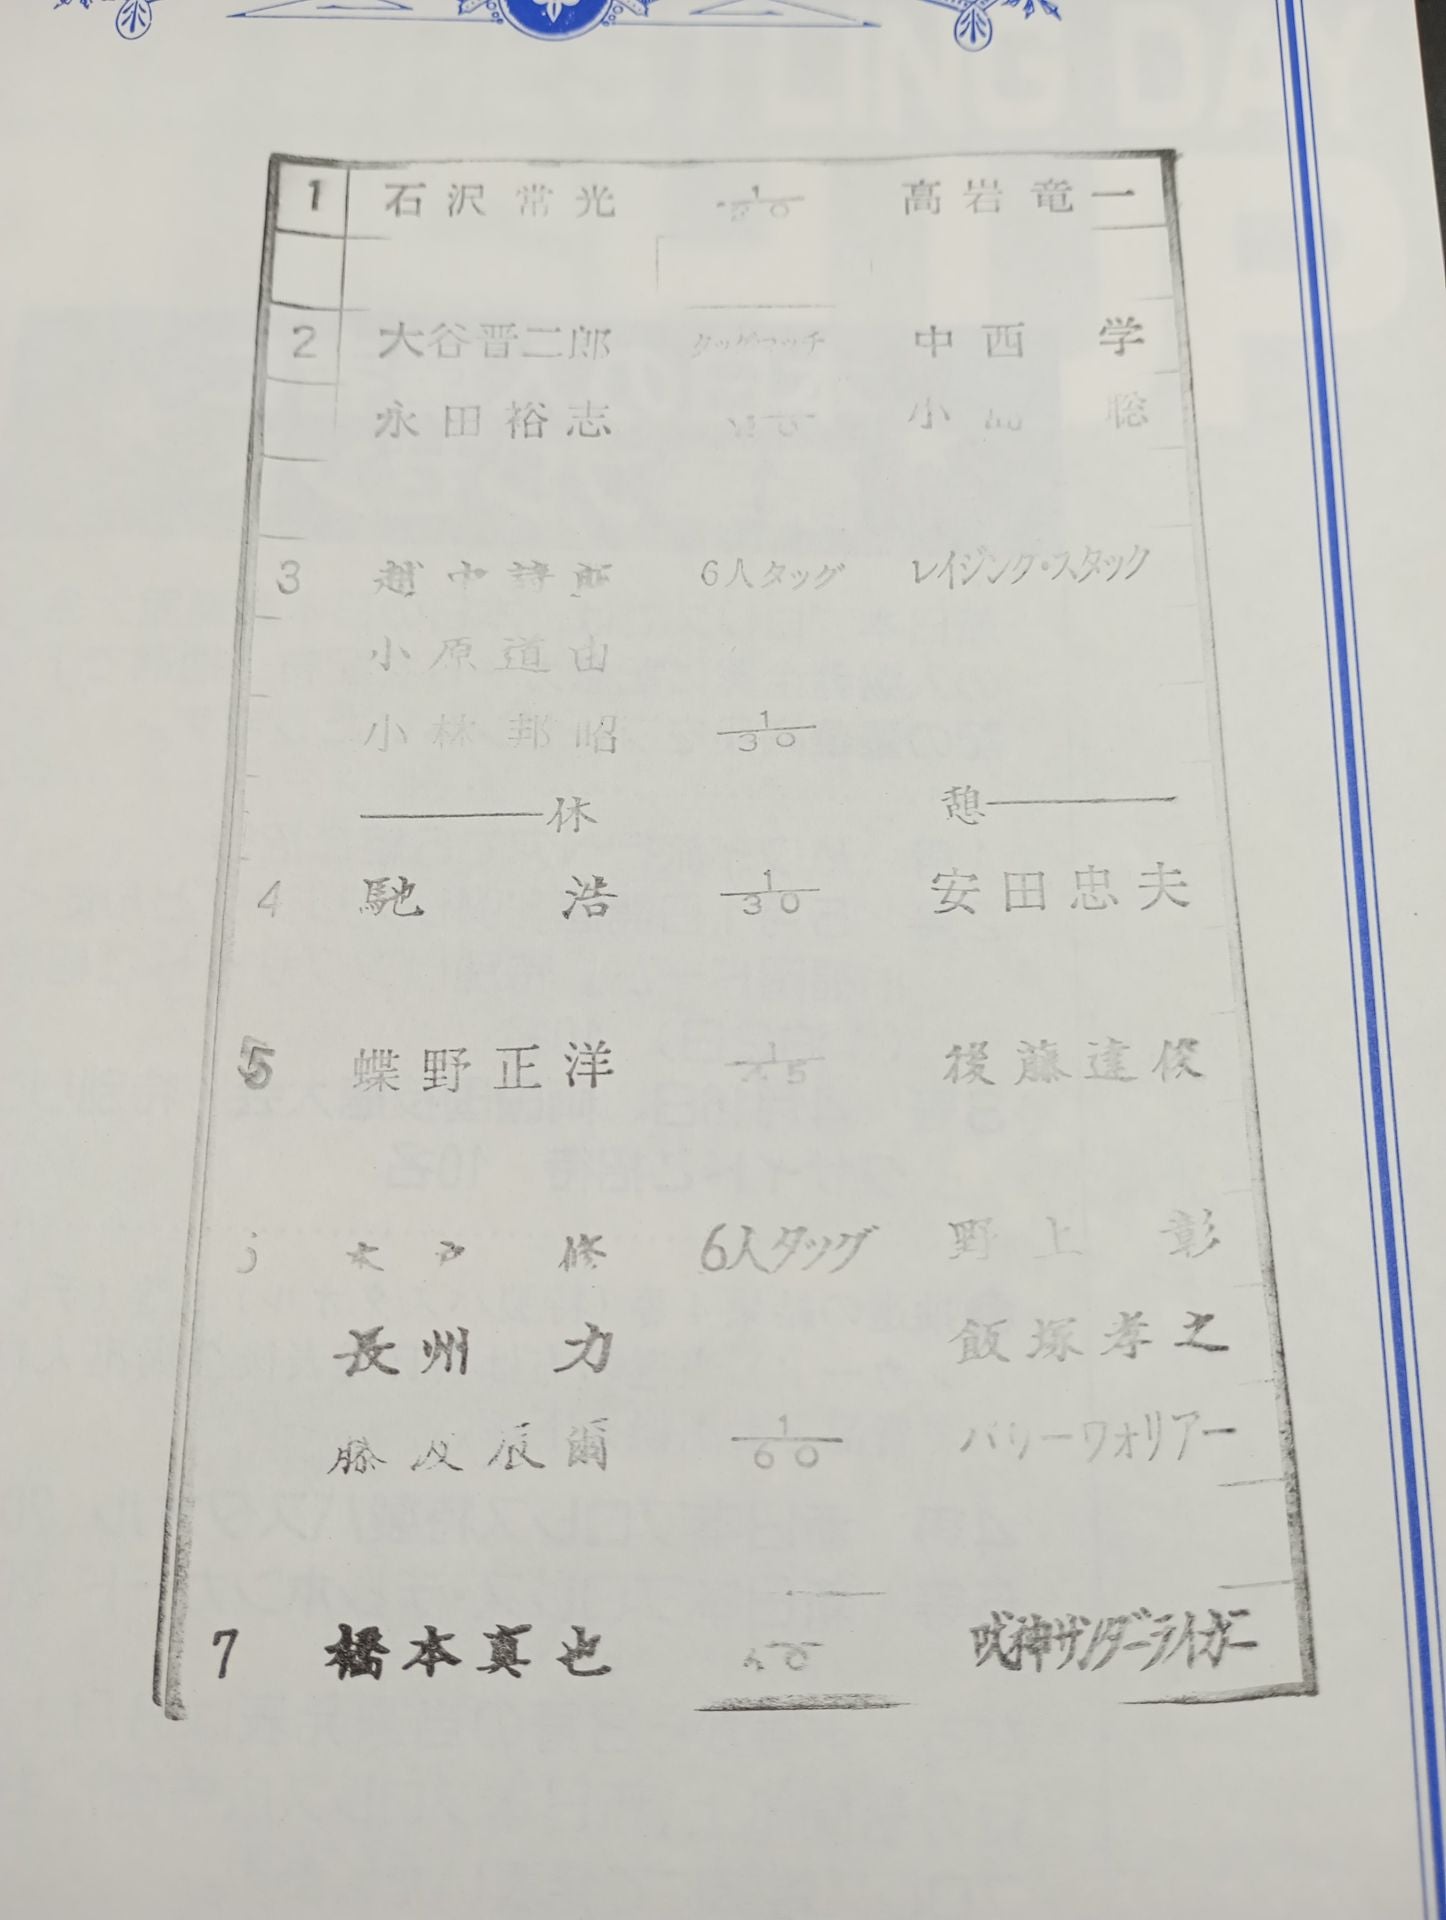 1 石沢常光 1/20 高岩竜一
2 大谷晋二郎 タッグマッチ 中西 学
永田裕志 小島 聡
3 越中詩郎 6人タッグ レイジング・スタッフ
小原道由
小林邦昭 1/30
休 憩
4 馳 浩 1/30 安田忠夫
5 蝶野正洋 1/45 後藤達俊
木戸 修 6人タッグ 野上 彰
長州 力 飯塚孝之
藤波辰爾 1/60 パワーウォリアー
7 橋本真也 獣神サンダーライガー